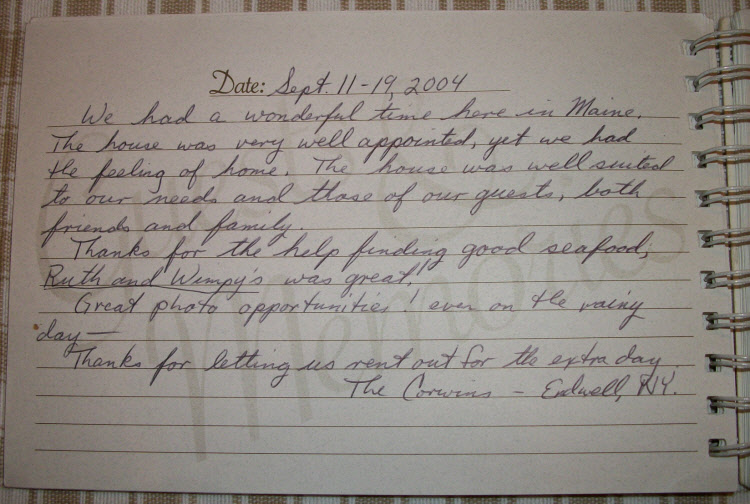 Date: Sept. 11-19, 2004
We had a wonderful time here in Maine.
The house was very well appointed, yet we had
the feeling of home. The house was well suited
to our needs and those of our guests, both
friends and family.
Thanks for the help finding good seafood,
Ruth and Wimpy's was great!
Great photo opportunities! even on the rainy
day—
Thanks for letting us rent out for the extra day.
The Corwins - Endwell, NY.
Guest
Memories